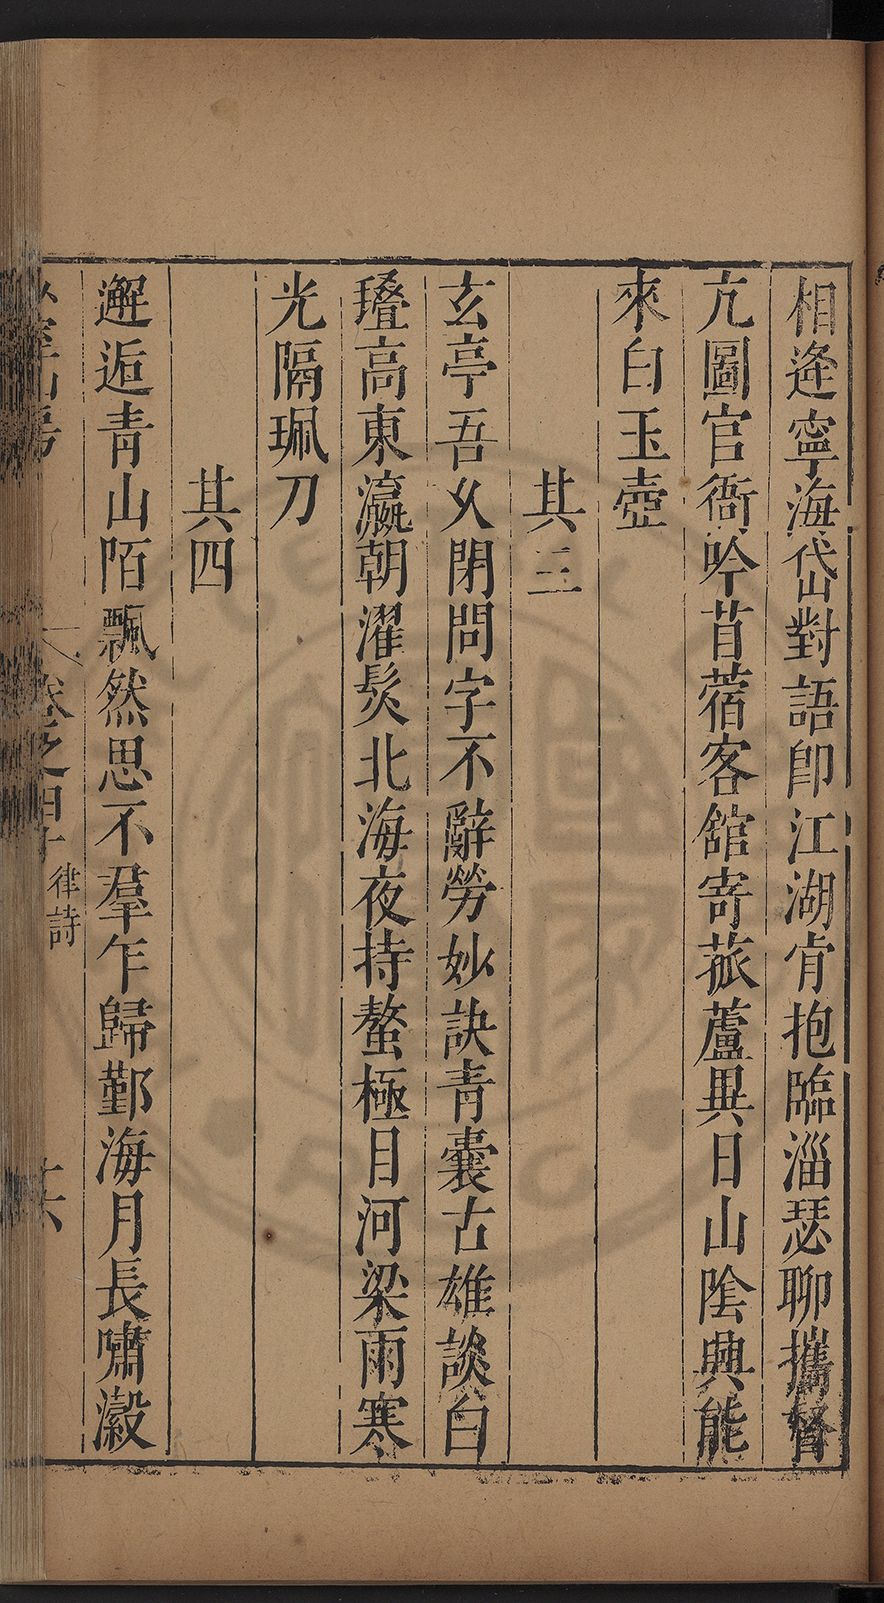 相逢寧海岱對語卽江湖肯抱臨淄瑟聊攜督
亢圖官衙吟苜蓿客舘寄菰蘆異日山陰興能
來白玉壺
其三
玄亭吾乆閉問字不辭勞妙訣青囊古雄談白
㲲高東瀛朝濯髮北海夜持螯極目河梁雨寒
光隔珮刀
其四
邂逅青山陌飄然思不羣乍歸鄞海月長嘯瀫
卷之四十
律詩
十六